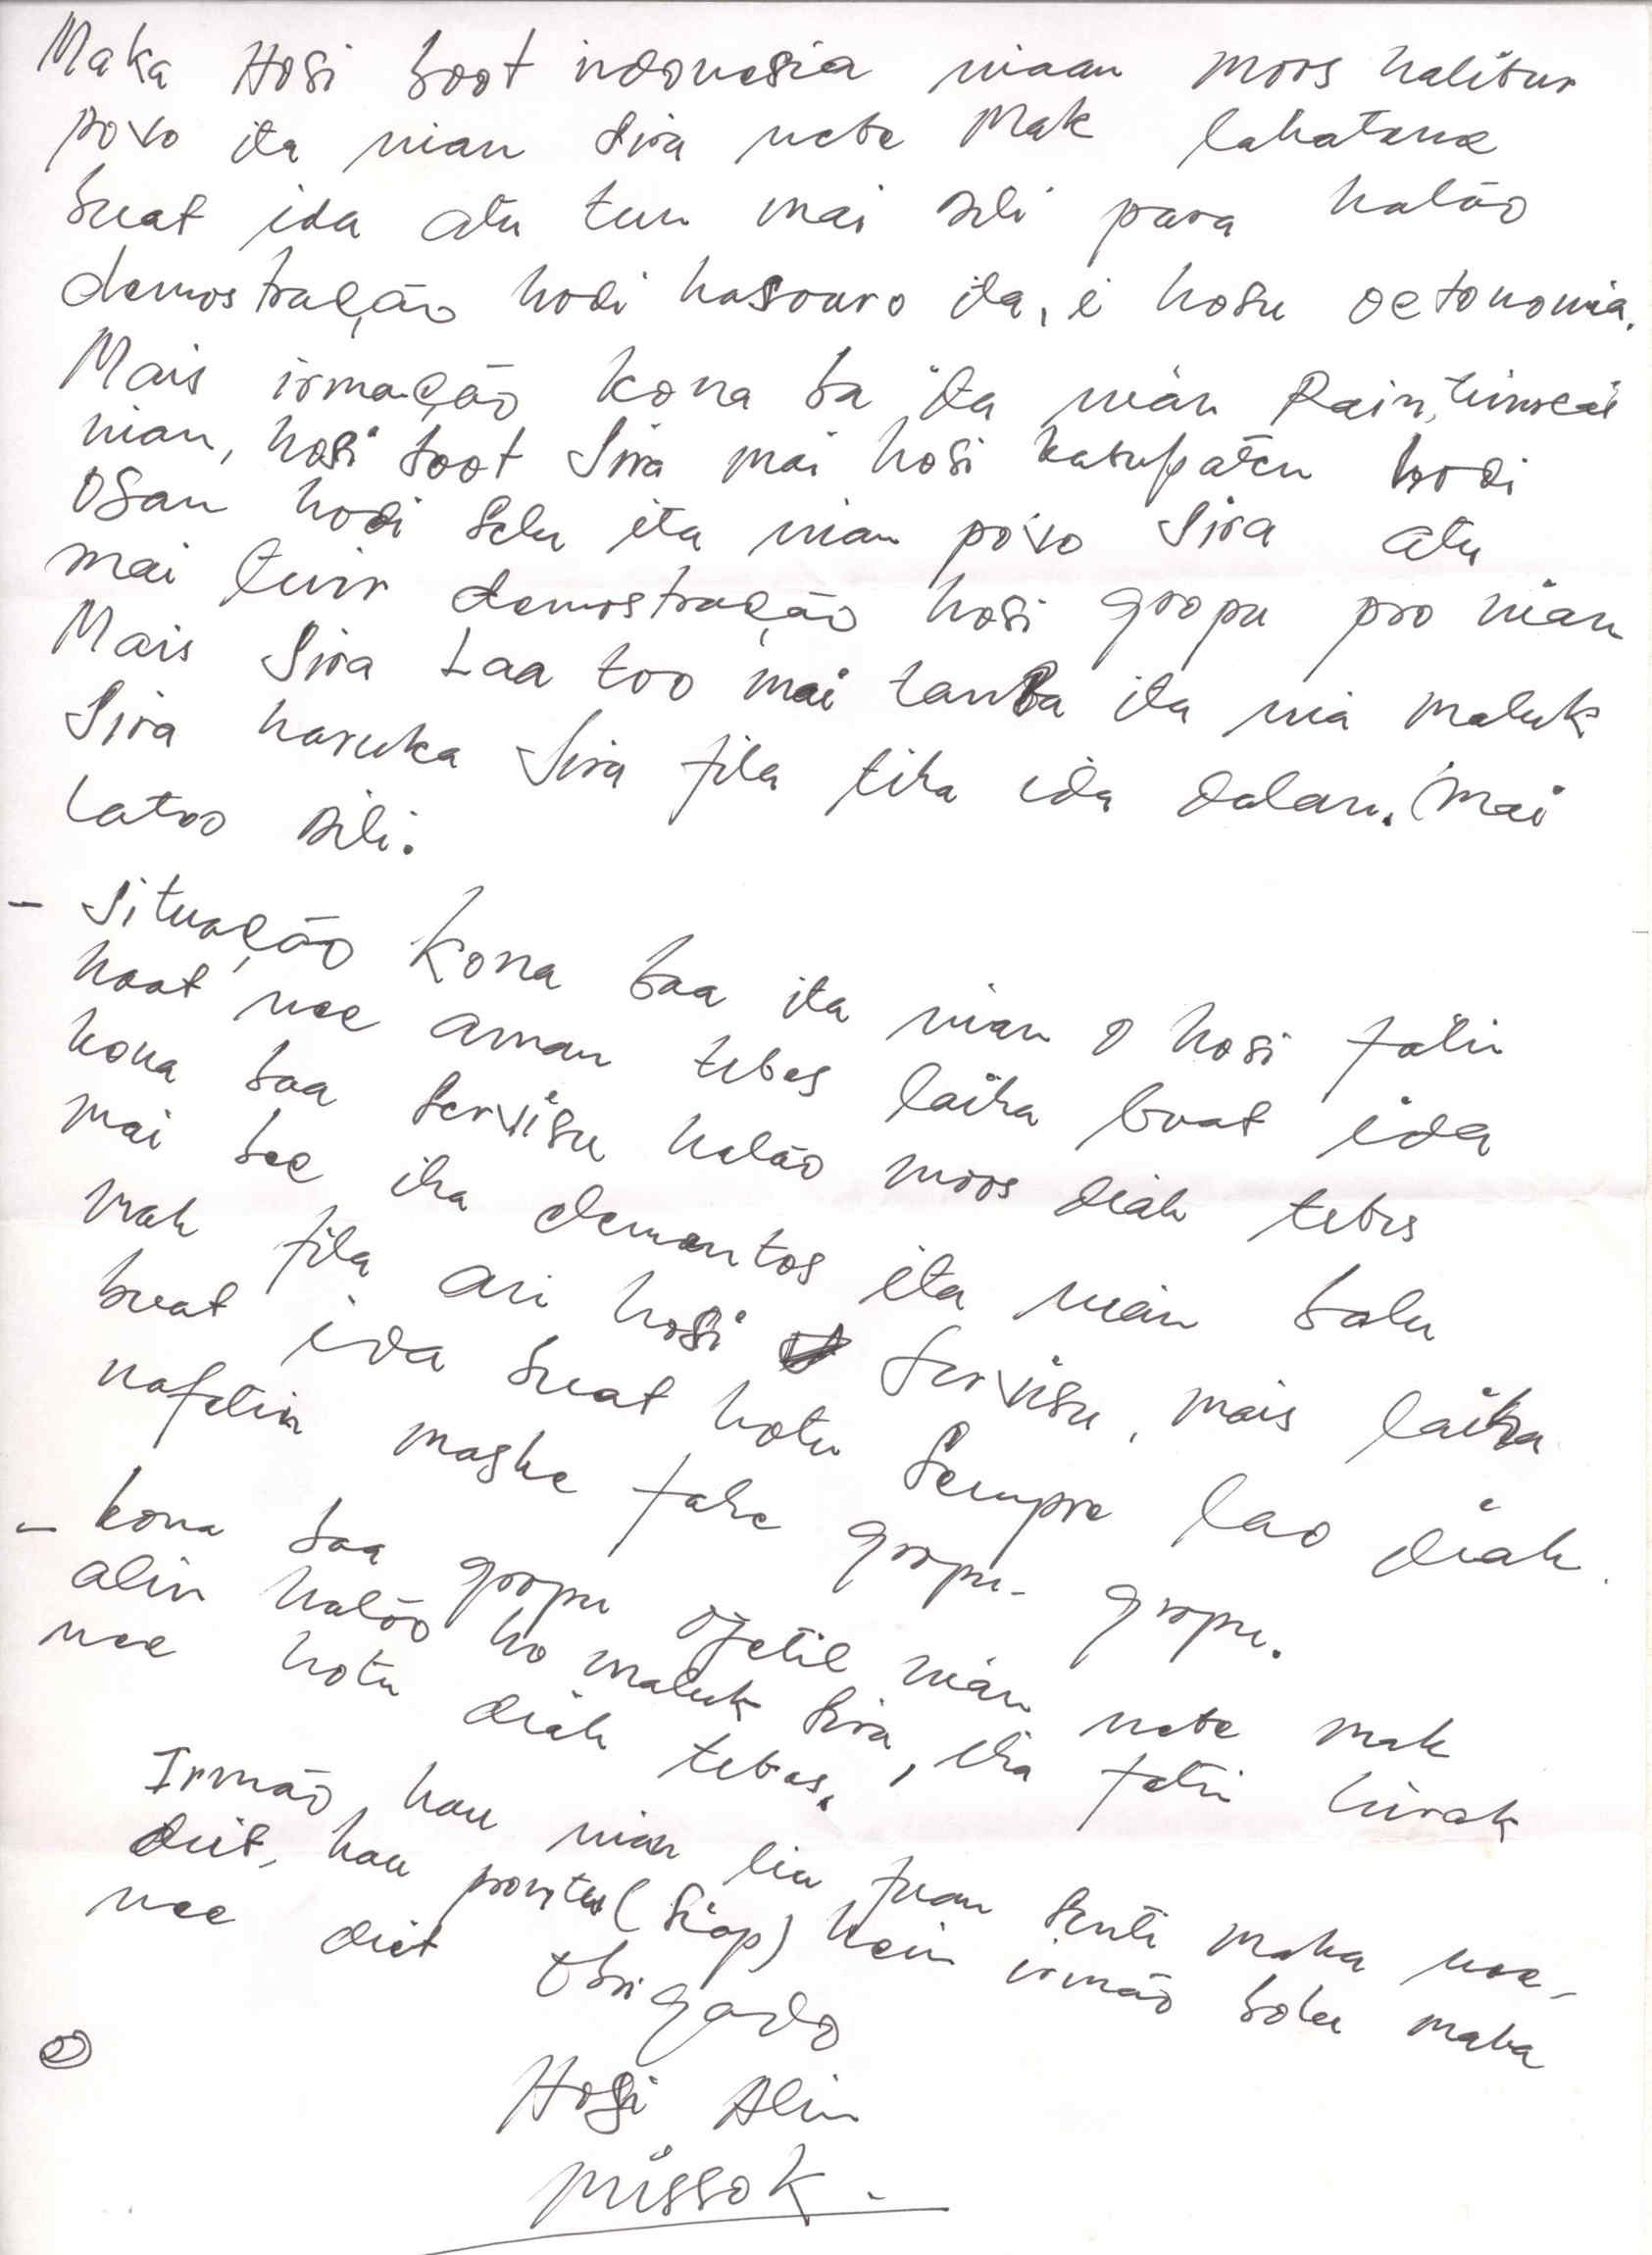 Maka Hosi boot indonesia niaan moos halibur
povo ita nian sira nebe mak lahatene
buat ida atu tun mai dili para halão
demostração hodi hasouro ita, i husu oetonomia.
Mais irmação kona ba ita nian Rain, timeai
nian, hosi boot sira mai hosi kabupaten hodi
osan hodi selu ita nian povo sira atu
mai tuir demostração hosi gropu pro nian
Mais sira Laa too mai tanba ita nia maluk
sira haruka sira fila tiha ida dalan. Mai
latoo dili.
- Situação kona baa ita nian o hosi fatin
haat nee aman tebes laiha buat ida
kona baa servisu halão moos diak tebes
mai bee iha elementos ita nian balu
mak fila an hosi servisu, mais laiha
buat ida buat hotu sempre lao diak.
nafatin maske fahe gropu-gropu.
- kona baa gropu ojetil nian nebe mak
alin halão ho maluk sira, iha fatin hirak
nee hotu diak tebes.
Irmão hau nian lia fuan senti maka nee-
deit, hau prontu (siap) hein irmão bolu maka
nee deit Obrigado
Hosi Alin
Missok.
2